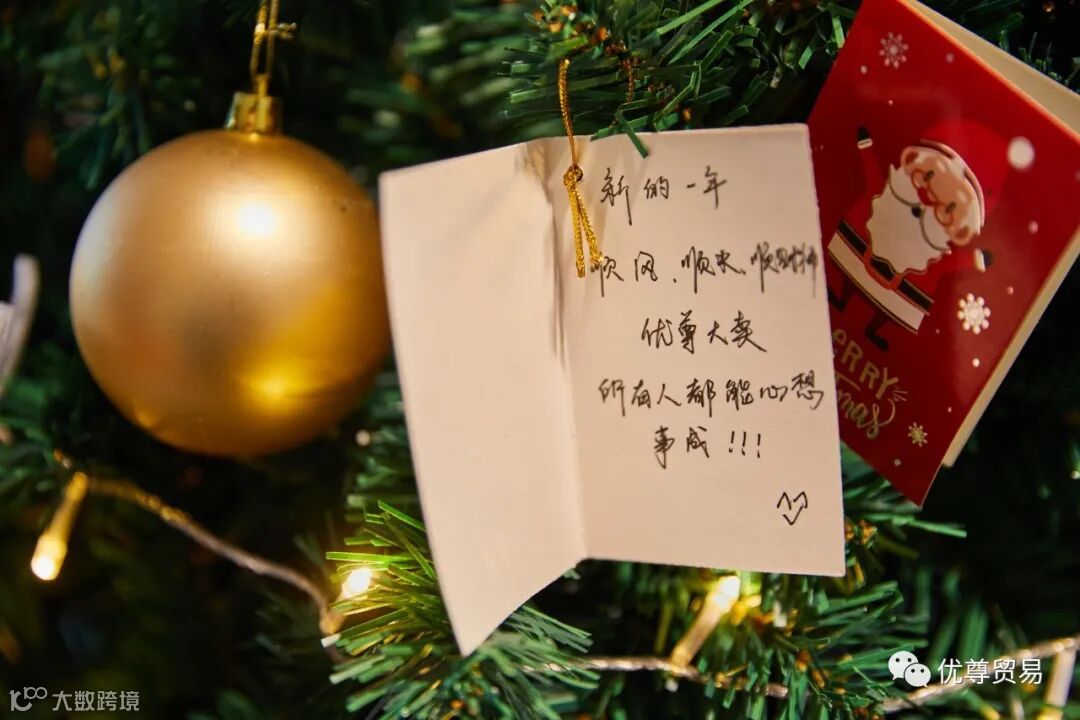 新的一年
顺风、顺水、顺财神
优尊大卖
所有人都能心想
事成!!!
MERRY
Xmas
大数跨境
优尊贸易